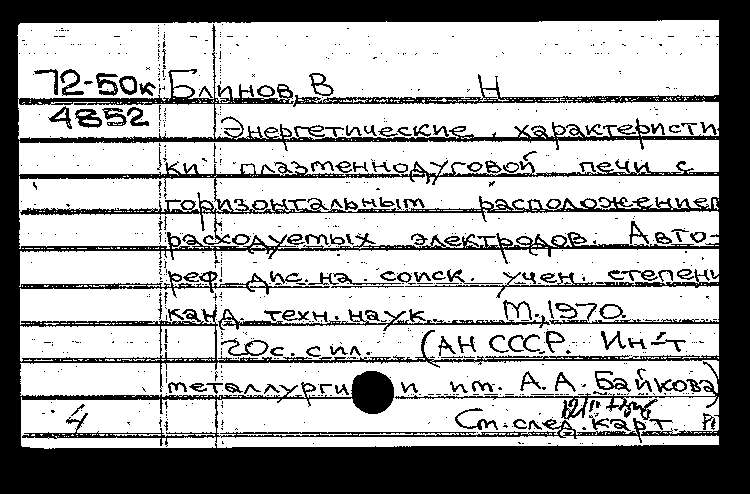 72-50к Блинов, В Н
4852
Энергетические характеристи
ки плазменнодуговой печи с
горизонтальным расположением
расходуемых электродов. Авто-
реф. дис. на соиск. учен. степени
канд. техн. наук. М., 1970.
20 с. с ил. (АН СССР. Ин-т
металлургии им. А. А. Байкова)
4 См. след. карт.